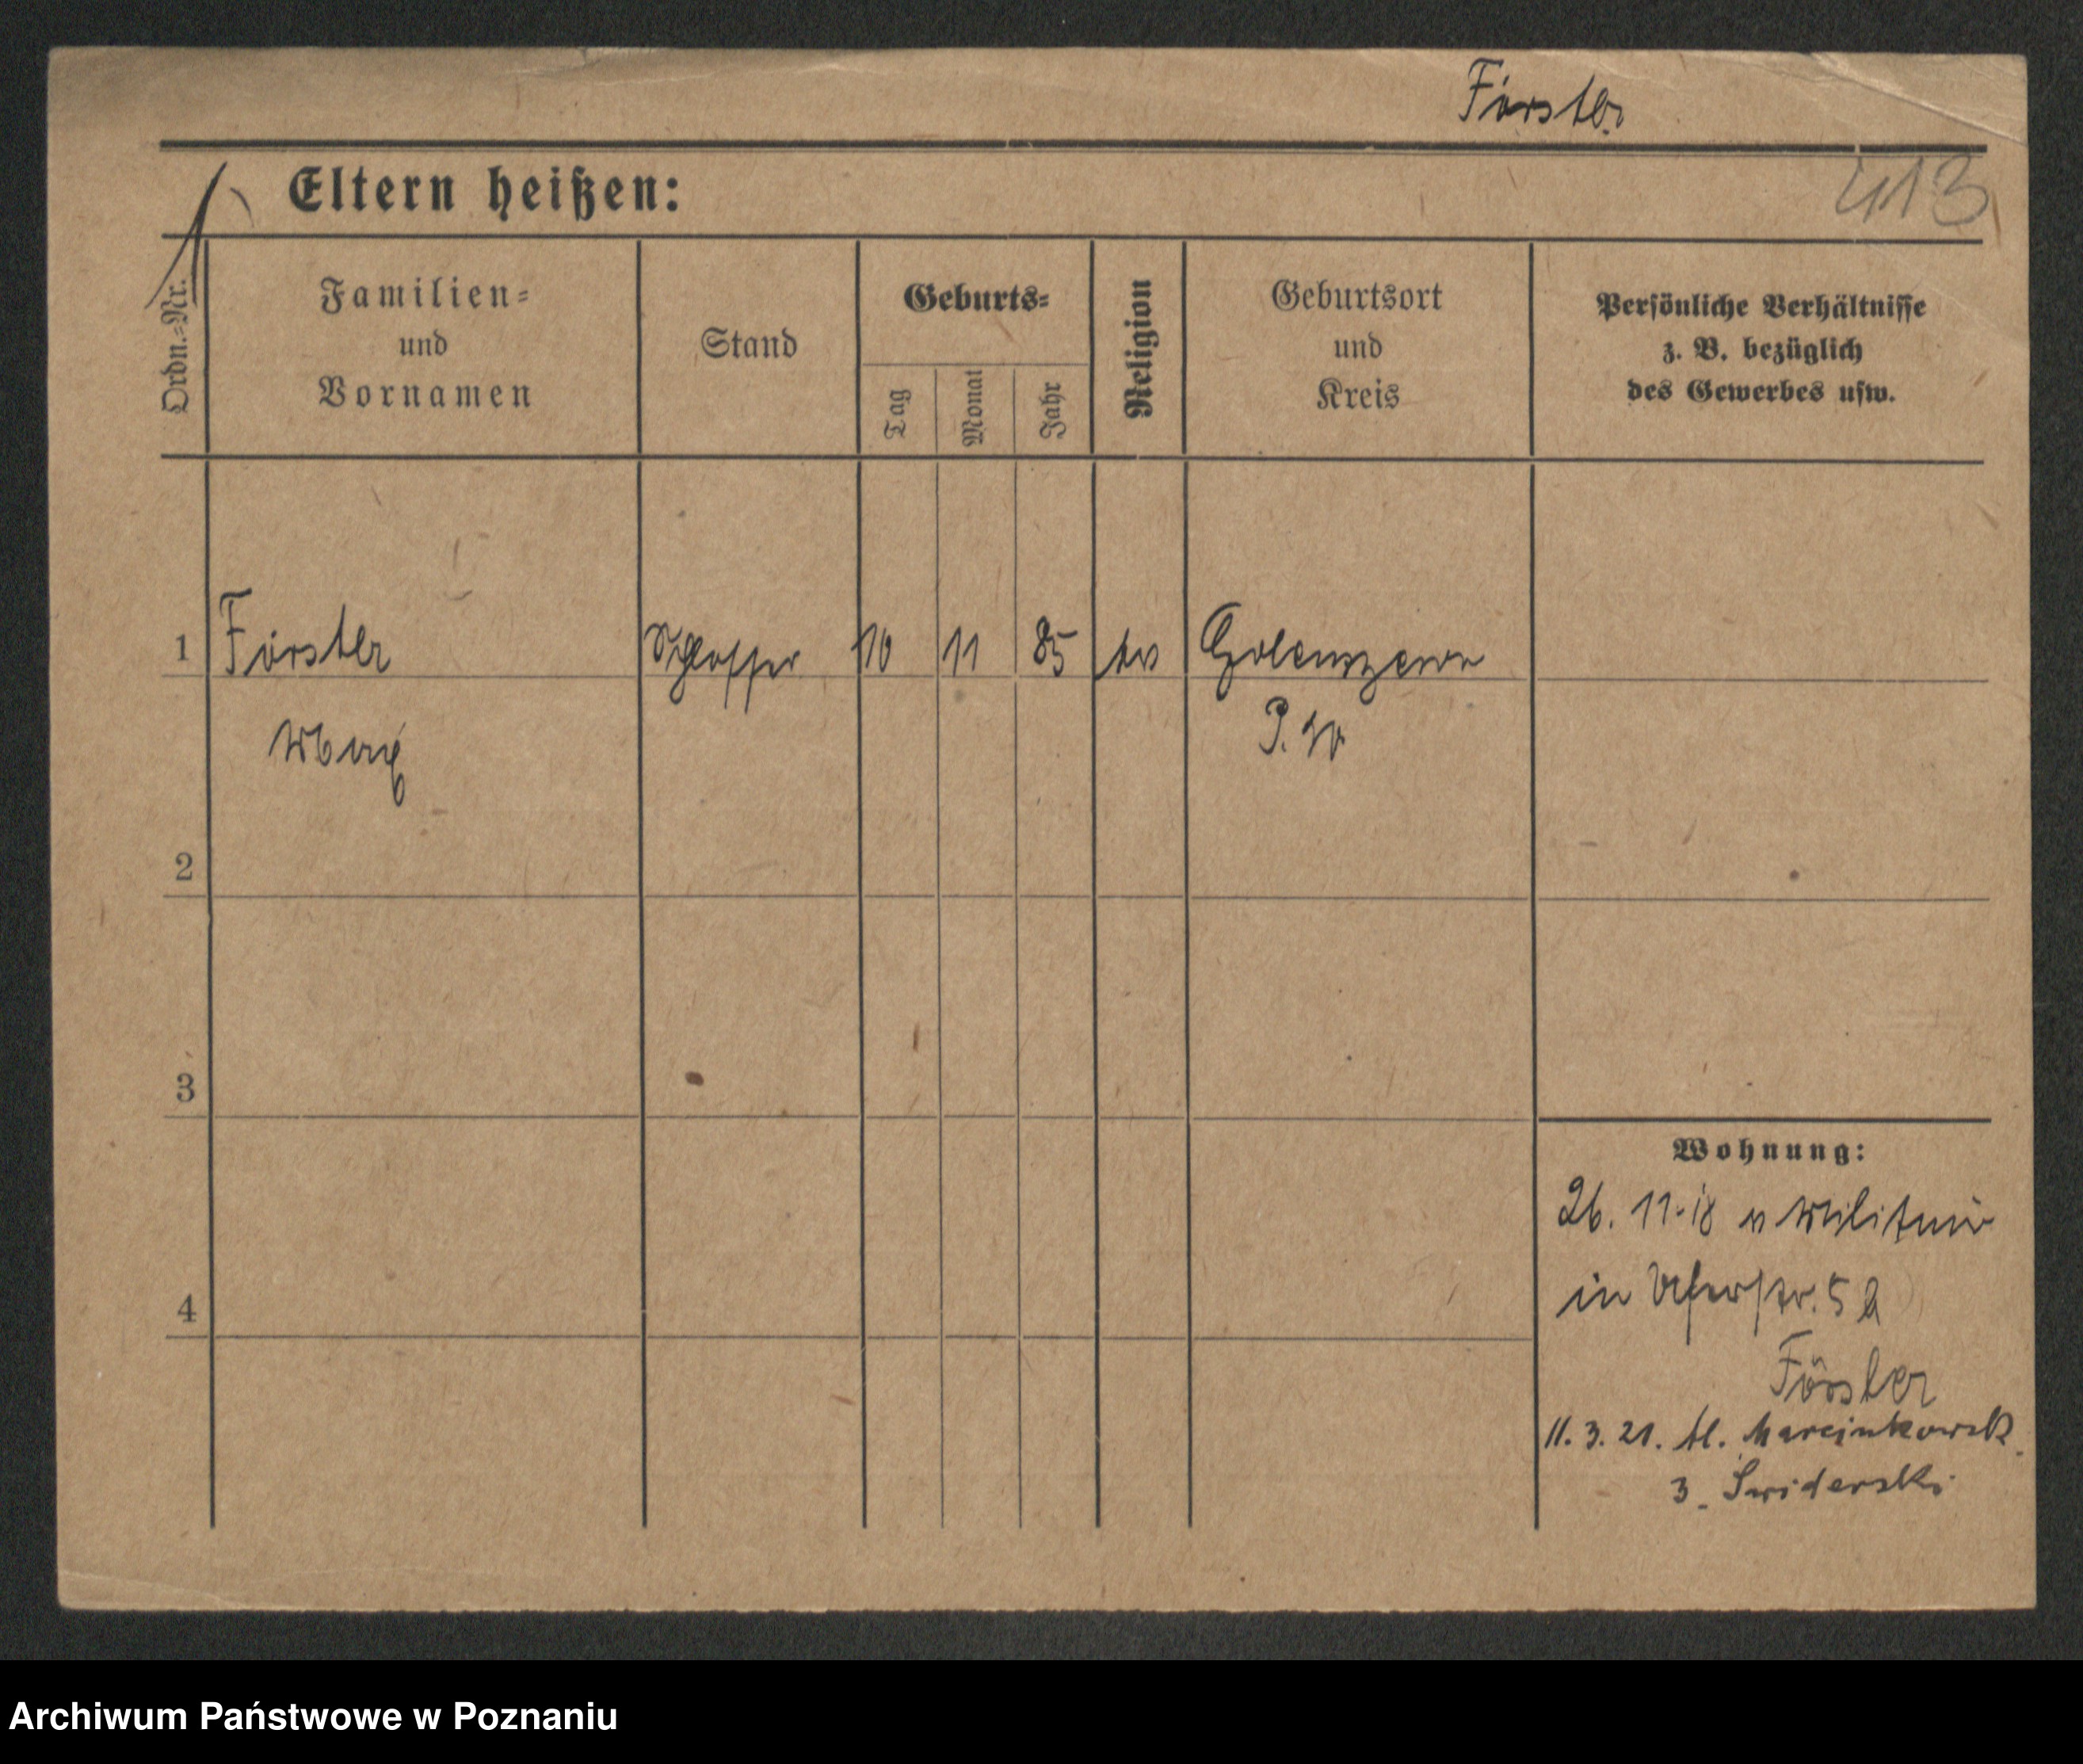 Förster
413
Eltern heißen:
Ordn.-Nr.
Familien-
und
Vornamen
Stand
Geburts-
Tag
Monat
Jahr
Religion
Geburtsort
und
Kreis
Persönliche Verhältnisse
z. B. bezüglich
des Gewerbes usw.
1 Förster Schlosser 10 11 85
Max
2
3
4
Wohnung:
26. 11. 18 v Militär
in Uferstr. 5
Förster
11. 3. 21. Al. Marcinkowsk.
3. Swiderski
Archiwum Państwowe w Poznaniu